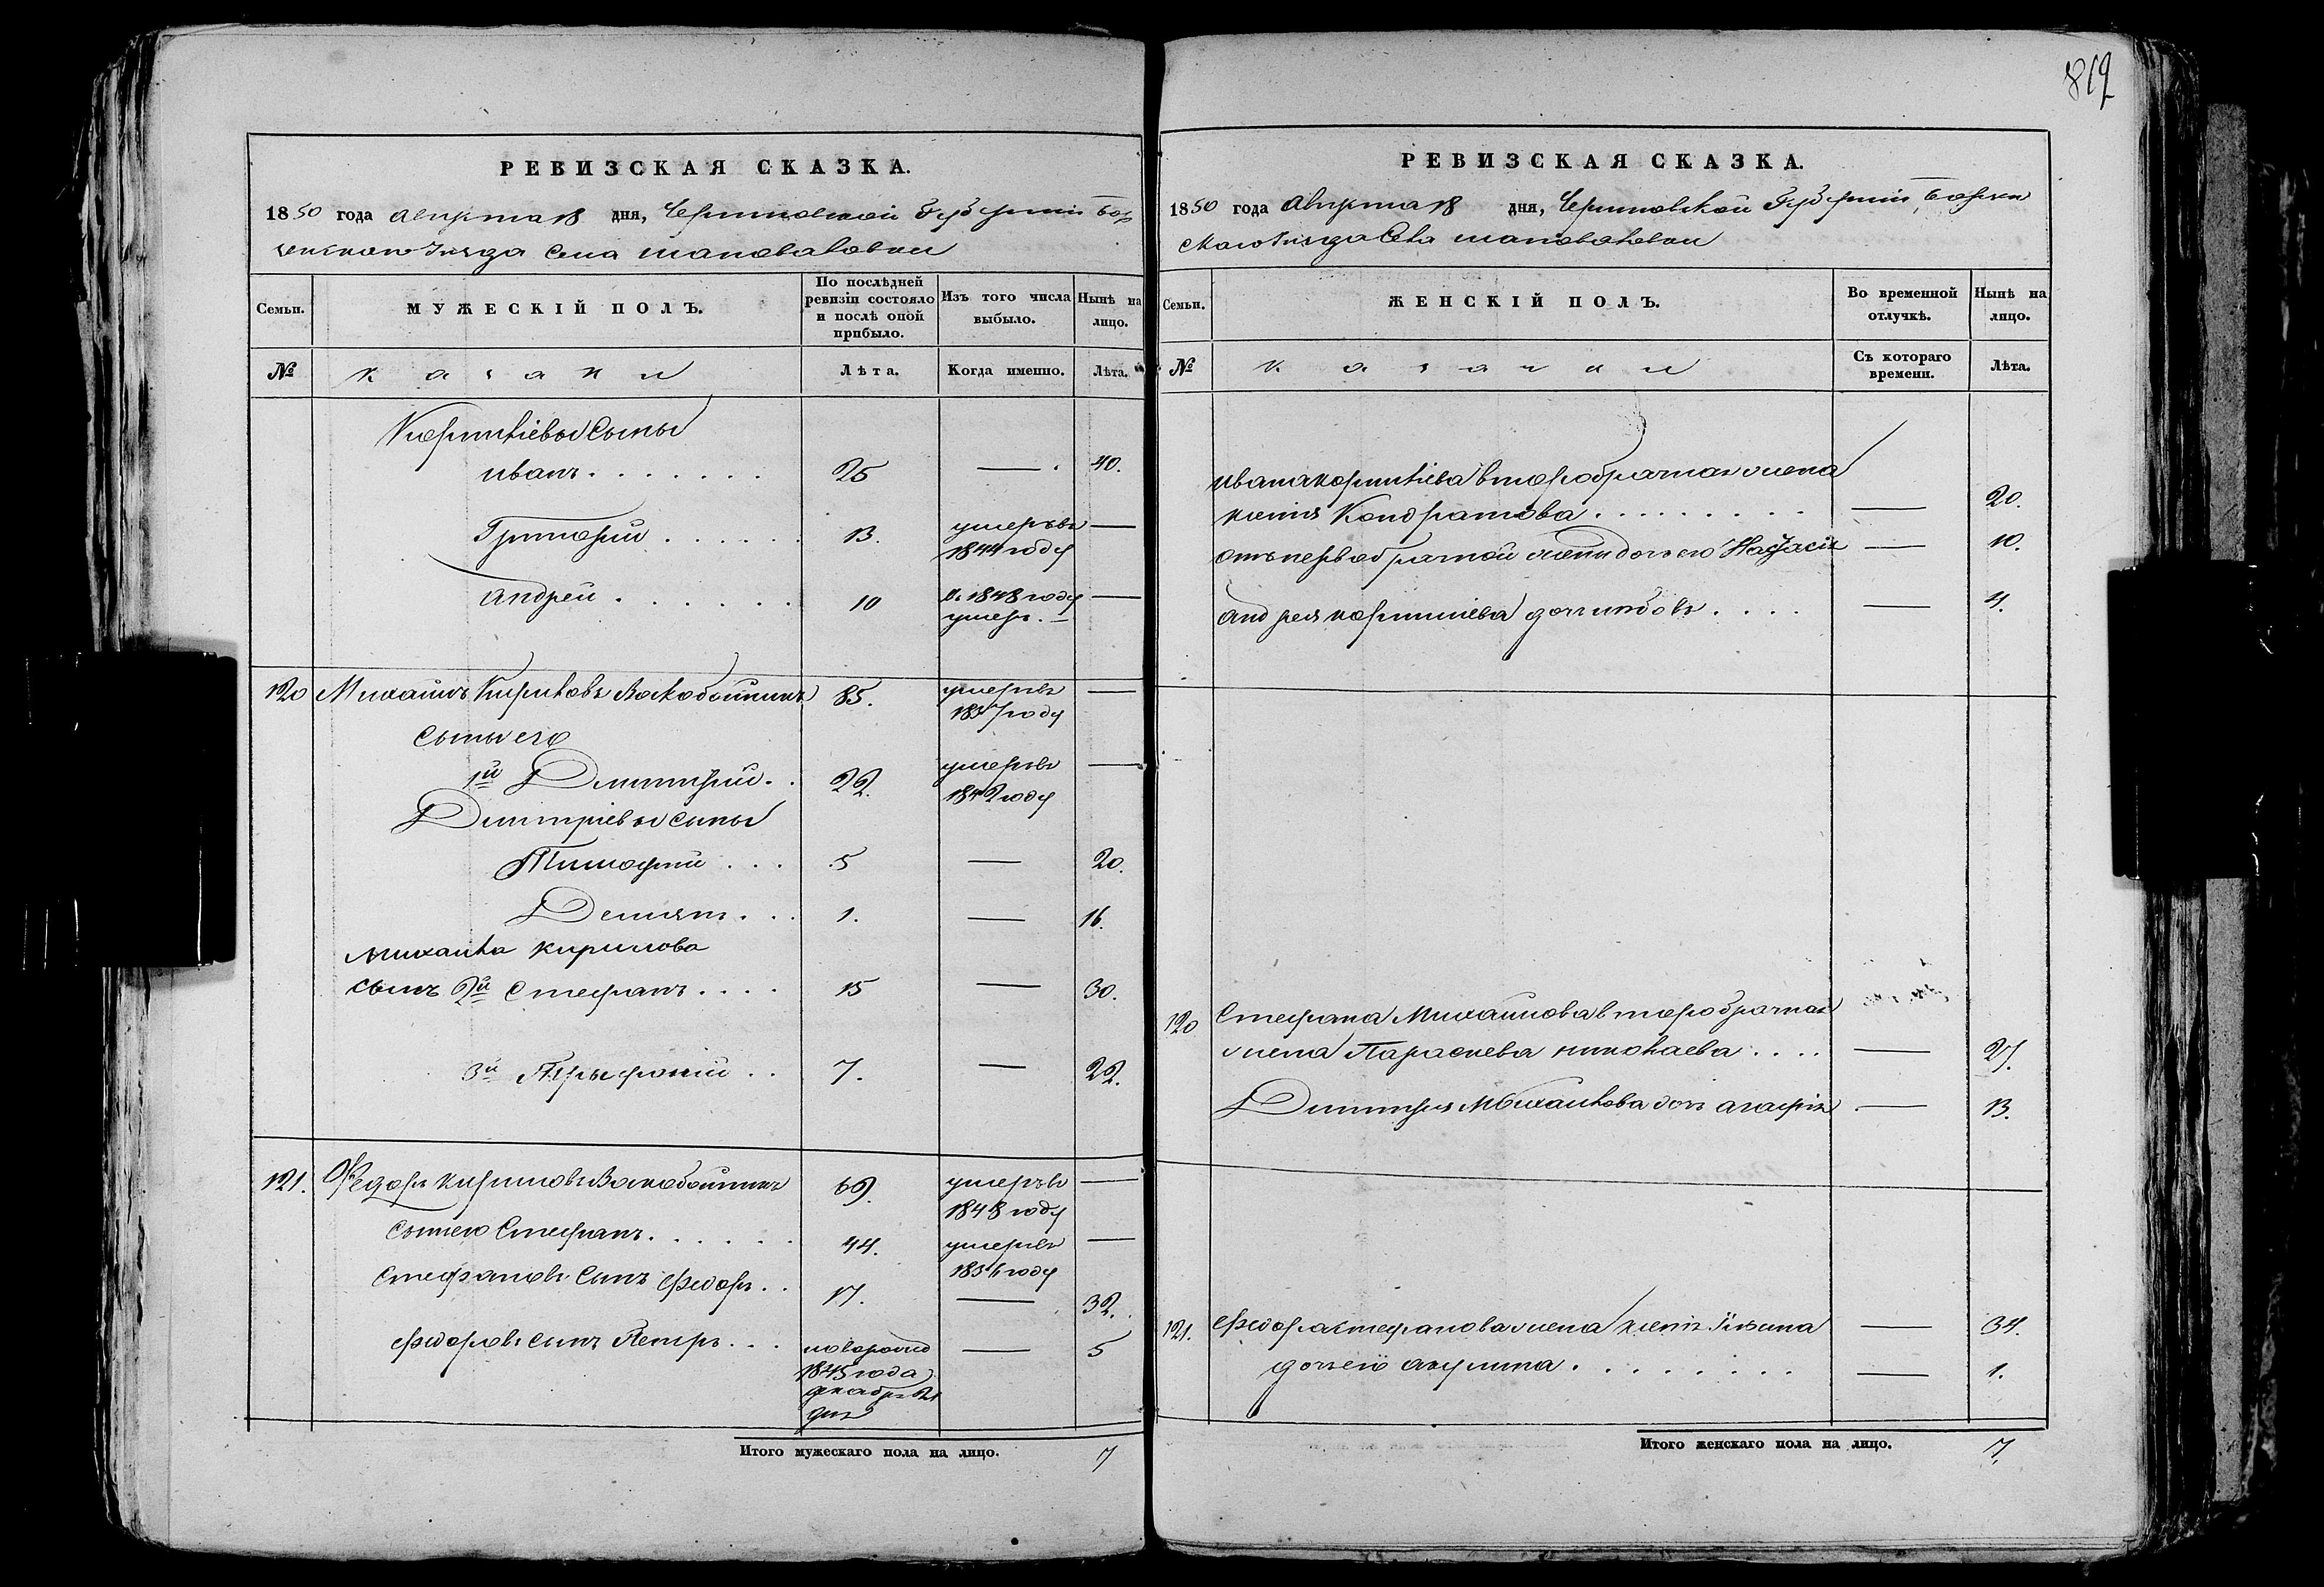 819
РЕВИЗСКАЯ СКАЗКА.
1850 года августа 18 дня, Черниговской Губернии Бор
зенского Уезда Села Шаповаловки
Семьи.
МУЖЕСКІЙ ПОЛЪ.
По послѣдней
ревизіи состояло
и послѣ оной
прибыло.
Изъ того числа
выбыло.
Нынѣ на
лицо.
№
казаки
Лѣта.
Когда именно.
Лѣта.
сыны
иванъ . . . . . . . 25 — 40.
Григорий . . . . . . 13. умеръ въ —
1844 году
андрей . . . . . . . 10 въ 1848 году —
умеръ.
120 Михаилъ Кириловъ Воскобойникъ 85. умеръ въ —
1837 году
сыны его
1й Димитрий . . 22. умеръ въ —
1842 году
Димитріевы сыны
Тимофей . . . 5 — 20.
Демянъ . . . 1. — 16.
михаила кирилова
сынъ 2й Стефанъ . . . . 15 — 30.
3й . . 7. — 22.
121. Федоръ кириловъ Воскобойникъ 69. умеръ въ —
1848 году
сынъ его Стефанъ . . . . . . 44. умеръ въ —
1836 году
Стефановъ сынъ Федоръ . . 17. — 32.
Федоровъ сынъ Петръ . . . новорожд — 5
1845 года
декабря 21
дня
Итого мужескаго пола на лицо. 7
РЕВИЗСКАЯ СКАЗКА.
1850 года августа 18 дня, Черниговской Губернии Борзен
ского Уезда Села шаповаловки
Семьи.
ЖЕНСКІЙ ПОЛЪ.
Во временной
отлучкѣ.
Нынѣ на
лицо.
№
казачки
Съ котораго
времени.
Лѣта.
ивана второбрачная жена
ксения Кондратова . . . . . . . . — 20.
отъ первобрачной жены дочь его Настасия — 10.
андрея дочь любовъ . . . . — 4.
120 Стефана Михаилова второбрачная
жена Параскева николаева . . . . — 27.
Димитрия Михаилова дочь агафия — 13.
121. Федора стефанова жена ксения — 34.
дочь его акулина . . . . . . . — 1.
Итого женскаго пола на лицо. 7.